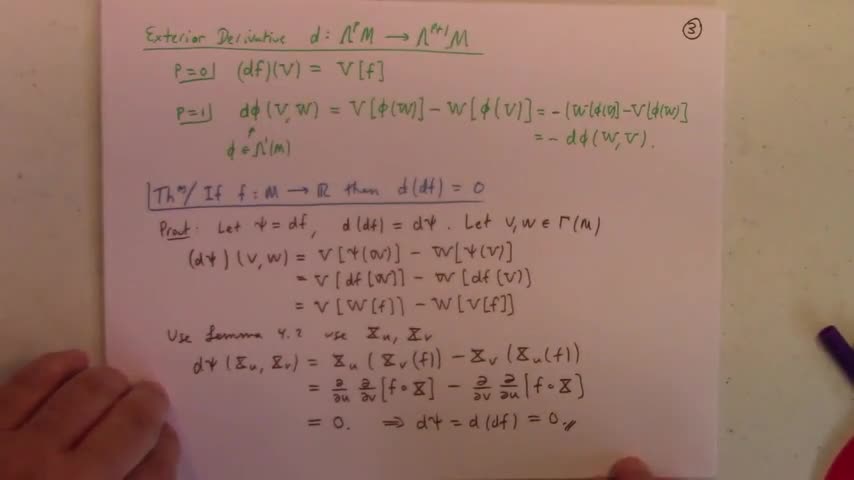 ③
Exterior Derivative d : Λ^p M → Λ^{p+1} M
p=0] (df)(V) = V[f]
p=1] dφ(V,W) = V[φ(W)] - W[φ(V)] = -(W[φ(V)] - V[φ(W)]
φ ∈ Λ^1(M) = - dφ(W,V).
Th^m/ If f : M → ℝ then d(df) = 0
Proof: Let ψ = df, d(df) = dψ. Let V,W ∈ Γ(M)
(dψ)(V,W) = V[ψ(W)] - W[ψ(V)]
= V[df[W)] - W[df(V)]
= V[W[f]] - W[V[f]]
Use Lemma 4.2 use X_u, X_v
dψ(X_u, X_v) = X_u(X_v(f)) - X_v(X_u(f))
= ∂/∂u ∂/∂v [f∘X] - ∂/∂v ∂/∂u [f∘X]
= 0. ⇒ dψ = d(df) = 0.//